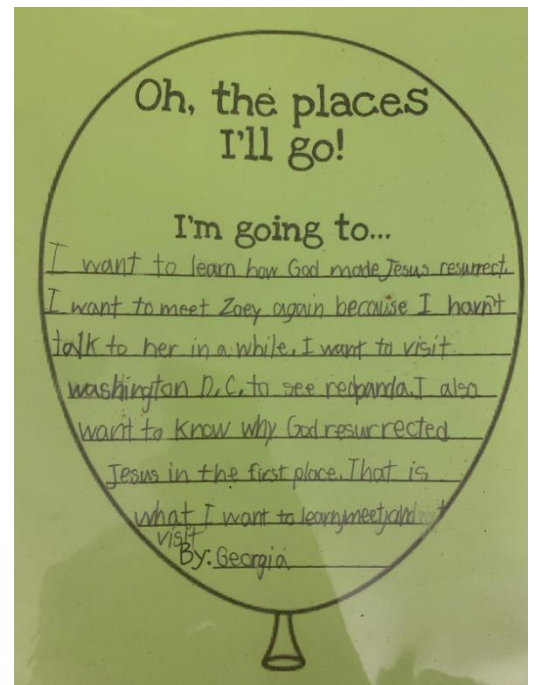 Oh, the places
I'll go!
I'm going to...
I want to learn how God made Jesus resurrect.
I want to meet Zoey again because I havn't
talk to her in a while. I want to visit
washington D.C. to see redpanda. I also
want to know why God resurrected
Jesus in the first place. That is
what I want to learn, meet, and
visit
By: Georgia